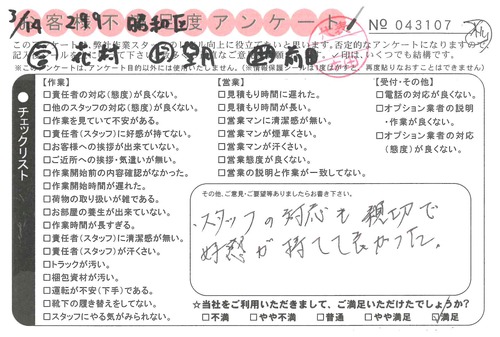 お客様不満足度アンケート
3/14 299 昭和区
No 043107
このアンケートは、弊社作業スタッフのレベル向上に役立てたいと思います。否定的なアンケートになりますので、
※このアンケートは、アンケート目的以外には使用いたしません。
チェックリスト
【作業】
□責任者の対応(態度)が良くない。
□他のスタッフの対応(態度)が良くない。
□作業を見ていて不安がある。
□責任者(スタッフ)に好感が持てない。
□お客様への挨拶が出来ていない。
□ご近所への挨拶・気遣いが無い。
□作業開始前の内容確認がなかった。
□作業開始時間が遅れた。
□荷物の取り扱いが雑である。
□お部屋の養生が出来ていない。
□作業時間が長すぎる。
□責任者(スタッフ)に清潔感が無い。
□責任者(スタッフ)が汗くさい。
□トラックが汚い。
□梱包資材が汚い。
□運転が不安(下手)である。
□靴下の履き替えをしてない。
□スタッフにやる気がみられない。
【営業】
□見積もり時間に遅れた。
□見積もり時間が長い。
□営業マンに清潔感が無い。
□営業マンが煙草くさい。
□営業マンが汗くさい。
□営業態度が良くない。
□営業の説明と作業が一致してない。
【受付・その他】
□電話の対応が良くない。
□オプション業者の説明
・作業が良くない。
□オプション業者の対応
(態度)が良くない。
その他、ご意見・ご要望等ありましたらお書き下さい。
・スタッフの対応も親切で
好感が持てて良かった。
☆当社をご利用いただきまして、ご満足いただけたでしょうか?
□不満 □やや不満 □普通 □やや満足 □満足